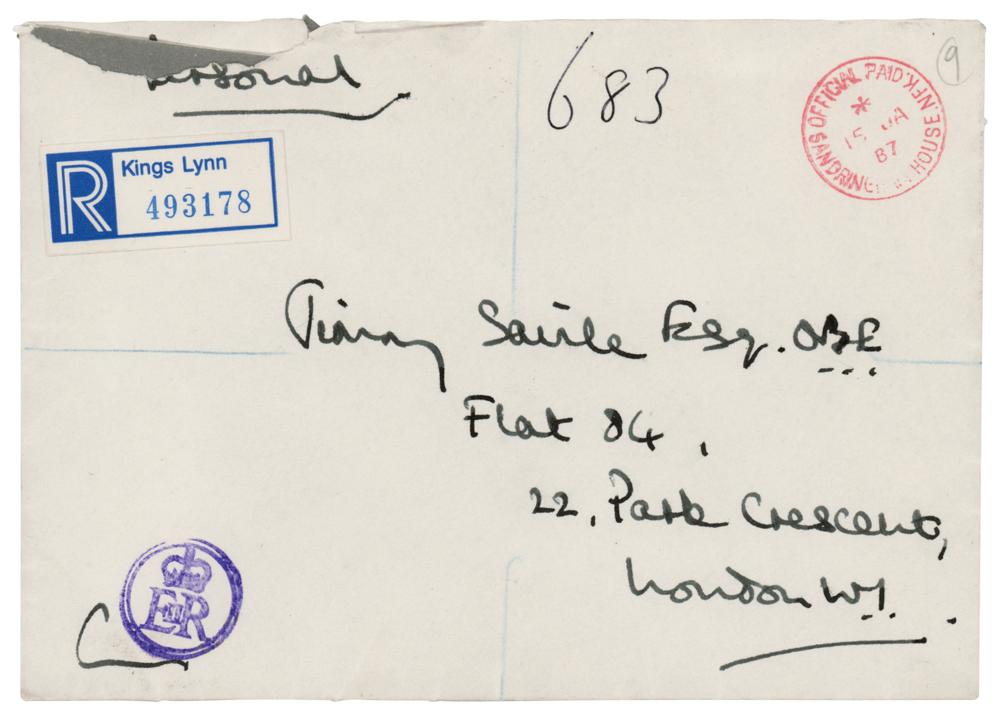 Personal
683
9
SANDRINGHAM HOUSE. NFK. OFFICIAL PAID
15 JA
87
R Kings Lynn
493178
Jimmy Savile Esq. OBE
Flat 84,
22, Park Crescent,
London W1.
EIIR